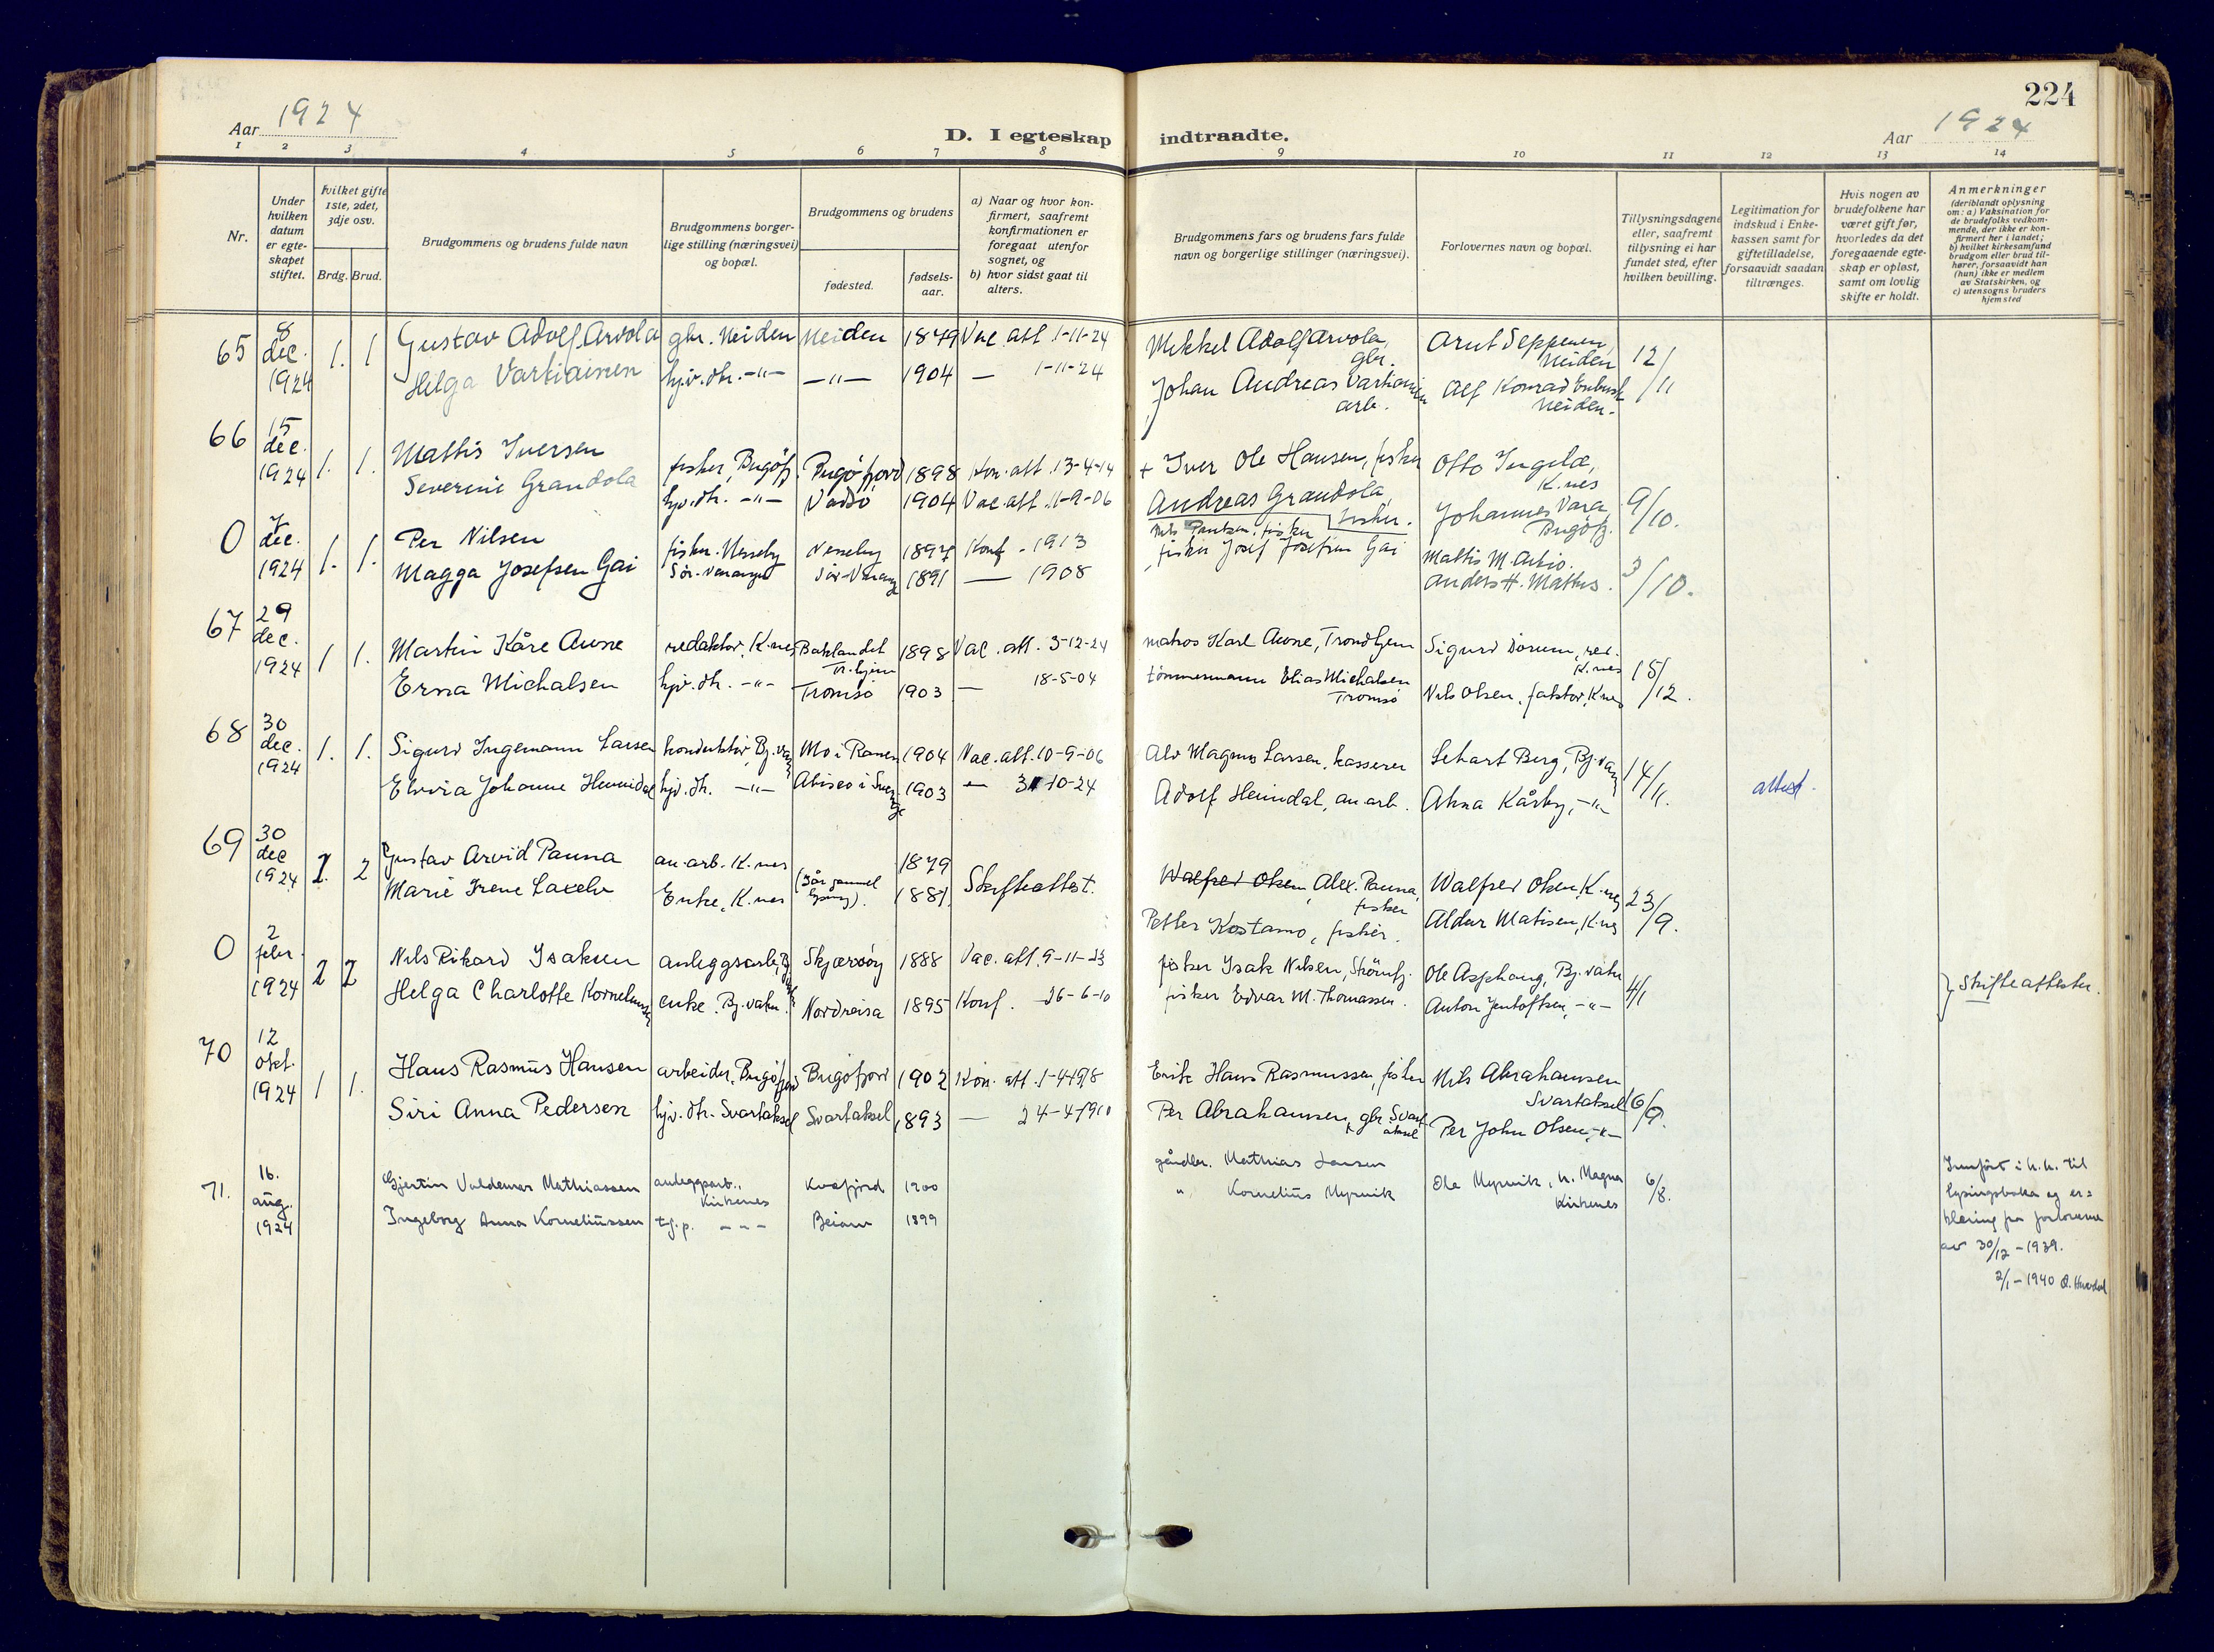 224
Aar 1924
D. I egteskap indtraadte.
Aar 1924
1 2 3 4 5 6 7 8 9 10 11 12 13 14
Nr.
Under hvilken datum er egteskapet stiftet.
Hvilket gifte 1ste, 2det, 3dje osv.
Brdg. Brud.
Brudgommens og brudens fulde navn
Brudgommens borgerlige stilling (næringsvei) og bopæl.
Brudgommens og brudens
fødested.
fødselsaar.
a) Naar og hvor konfirmert, saafremt konfirmationen er foregaat utenfor sognet, og
b) hvor sidst gaat til alters.
Brudgommens fars og brudens fars fulde navn og borgerlige stillinger (næringsvei).
Forlovernes navn og bopæl.
Tillysningsdagene eller, saafremt tillysning ei har fundet sted, efter hvilken bevilling.
Legitimation for indskud i Enkekassen samt for giftetilladelse, forsaavidt saadan tiltrænges.
Hvis nogen av brudefolkene har været gift før, hvorledes da det foregaaende egteskap er opløst, samt om lovlig skifte er holdt.
Anmerkninger (deriblandt oplysning om: a) Vaksination for de brudefolks vedkommende, der ikke er konfirmert her i landet; b) hvilket kirkesamfund brudgom eller brud tilhører, forsaavidt han (hun) ikke er medlem av Statskirken, og c) utensogns bruders hjemsted
65 8 dec. 1924 1. 1 Gustav Adolf Arvola gbr. Neiden Neiden 1879 Vac. att. 1-11-24 Mikkel Adolf Arvola, gbr. Arut Seppenen, Neiden 12/11
Helga Vartiainen hjv. dtr. -"- -"- 1904 — 1-11-24 Johan Andreas Vartiainen arb. Alf Konrad Neiden.
66 15 dec. 1924 1. 1. Mattis Iversen fisker, Bugöfj. Bugöfjord 1898 Kon. att. 13-4-14 + Iver Ole Hansen, fisker Otto Ingilæ, K.nes 9/10.
Severine Grandola hjv. dtr. -"- Vadsö 1904 Vac. att. 11-9-06 Andreas Grandola, fisker. Johannes Vara, Bugöfj.
0 7 dec. 1924 1. 1. Per Nilsen fisker. Nesseby Nesseby 1897 Konf. - 1913 fisker Mattis M. 3/10.
Magga Josefsen Gai Sör-Varanger Sör-Varang. 1891 — 1908 fisker Josef Josefsen Gai Anders H. Mathis.
67 29 dec. 1924 1 1. Martin Kåre Aune redaktör, K.nes Baklandet Tr.hjem 1898 Vac. att. 3-12-24 matros Karl Aune, Trondhjem Sigurd Dörum, red. K.nes 15/12.
Erna Michalsen hjv. dtr. -"- Tromsö 1903 — 18-5-04 tömmermann Elias Michalsen Tromsö Nils Olsen, faktor, K.nes
68 30 dec. 1924 1. 1. Sigurd Ingemann Larsen konduktör, Bj.van Mo i Ranen 1904 Vac. att. 10-9-06 Alv Magnus Larsen, kasserer Sehart Berg, Bj.van 14/11. attest.
Elvira Johanne Heimdal hjv. dtr. -"- Abisco i Sverige 1903 — 31-10-24 Adolf Heimdal, an. arb. Alma Kårby, -"-
69 30 dec 1924 1. 2 Gustav Arvid Panna an. arb. K.nes (3 år gammel lysning). 1879 Skifteattest. Walfred Olsen, Alex. Panna, fisker Walfred Olsen, K.nes 23/9.
Marie Irene Enke, K.nes 1881 Petter Kostamo, fisker. Aldar Matisen, K.nes
0 2 febr. 1924 2 2 Nils Rikard Isaksen anleggsarb. Skjærvöy 1888 Vac. att. 9-11-23 fisker Isak Nilsen, Strömfj. Ole Asphaug, Bj.vatn 4/1 Skifteattester.
Helga Charlotte Kornelius enke. Bj.vatn. Nordreisa 1895 Konf. 26-6-10 fisker Edvar M. Thomassen. Anton Jentoftsen, -"-
70 12 okt. 1924 1 1. Hans Rasmus Hansen arbeider, Bugöfjord Bugöfjord 1902 Kon. att. 1-4-1918 Erik Hans Rasmussen, fisker Nils Abrahamsen Svartaksel 16/9.
Siri Anna Pedersen hjv. dtr. Svartaksel Svartaksel 1893 — 24-4-1910 Per Abrahamsen, gbr. Svartaksel Per John Olsen, -"-
71. 16. aug. 1924 Gjertin Valdemar Mathiassen anleggsarb., Kirkenes Kvæfjord 1900 gårdbr. Mathias Jansen Ole Myrvik, n. Magna Kirkenes 6/8. Innført i h.h. til lysningsboka og erklæring fra forloverne av 30/12-1939.
Ingeborg Anna Korneliussen tj.p. -"- Beiarn 1899 " Kornelius Myrvik 2/1-1940